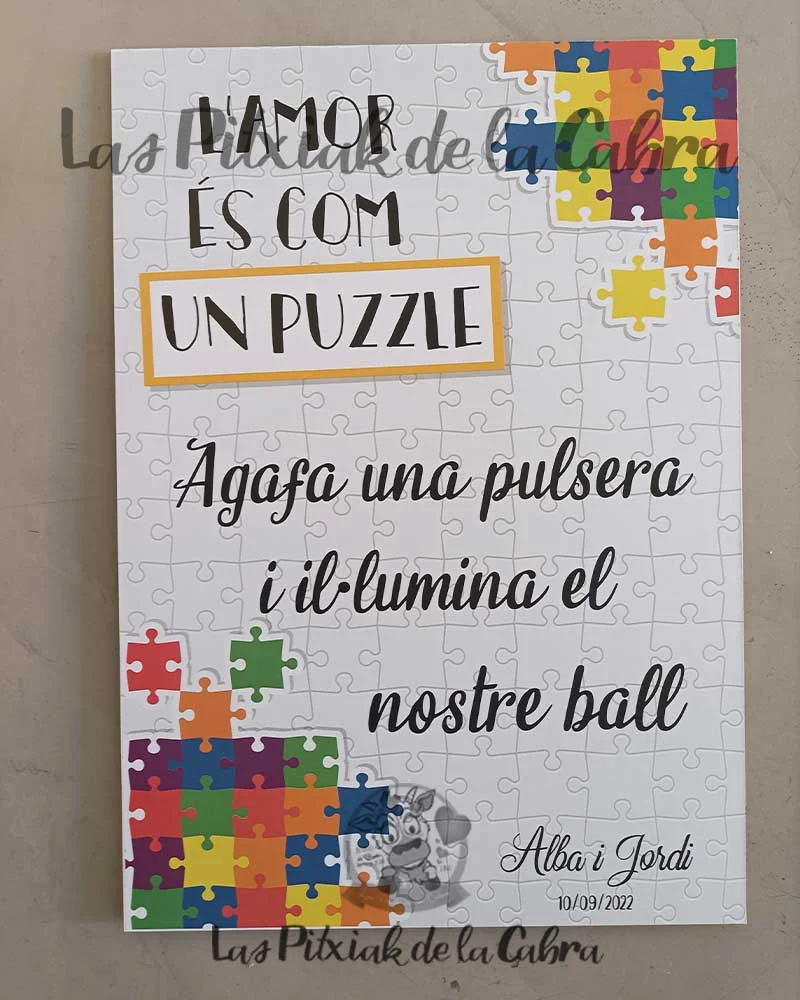 L'AMOR
Las Pitxiak de la Cabra
ÉS COM
UN PUZZLE
Agafa una pulsera
i il·lumina el
nostre ball
Alba i Jordi
10/09/2022
Las Pitxiak de la Cabra